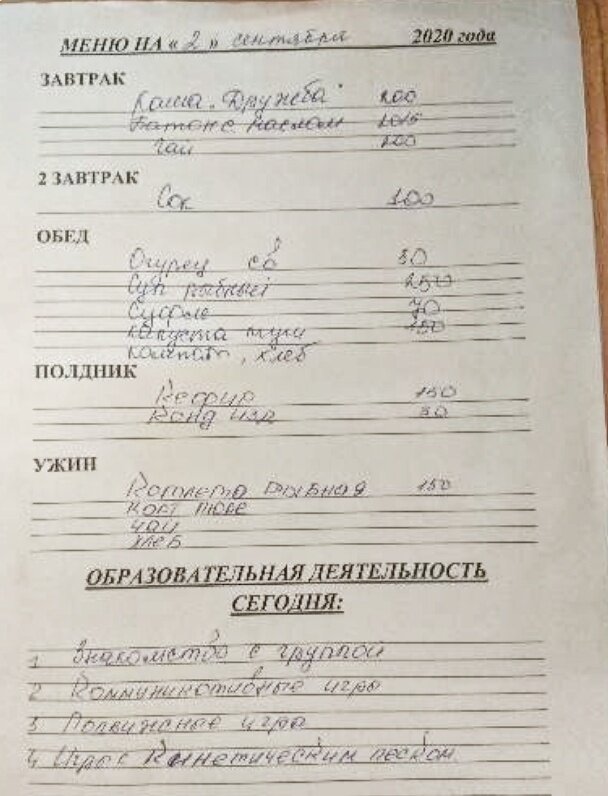 МЕНЮ НА « 2 » сентября 2020 года
ЗАВТРАК
Каша „Дружба" 200
Батон с маслом
Чай 200
2 ЗАВТРАК
Сок 100
ОБЕД
Огурец св 30
Суп рыбный 250
Суфле 70
Капуста туш 150
Компот, хлеб
ПОЛДНИК
Кефир 150
Конд изд 30
УЖИН
Котлета рыбная 150
Карт пюре
Чай
Хлеб
ОБРАЗОВАТЕЛЬНАЯ ДЕЯТЕЛЬНОСТЬ
СЕГОДНЯ:
1 Знакомство с группой
2 Коммуникативные игры
3 Подвижные игры
4 Игры с Кинетическим песком